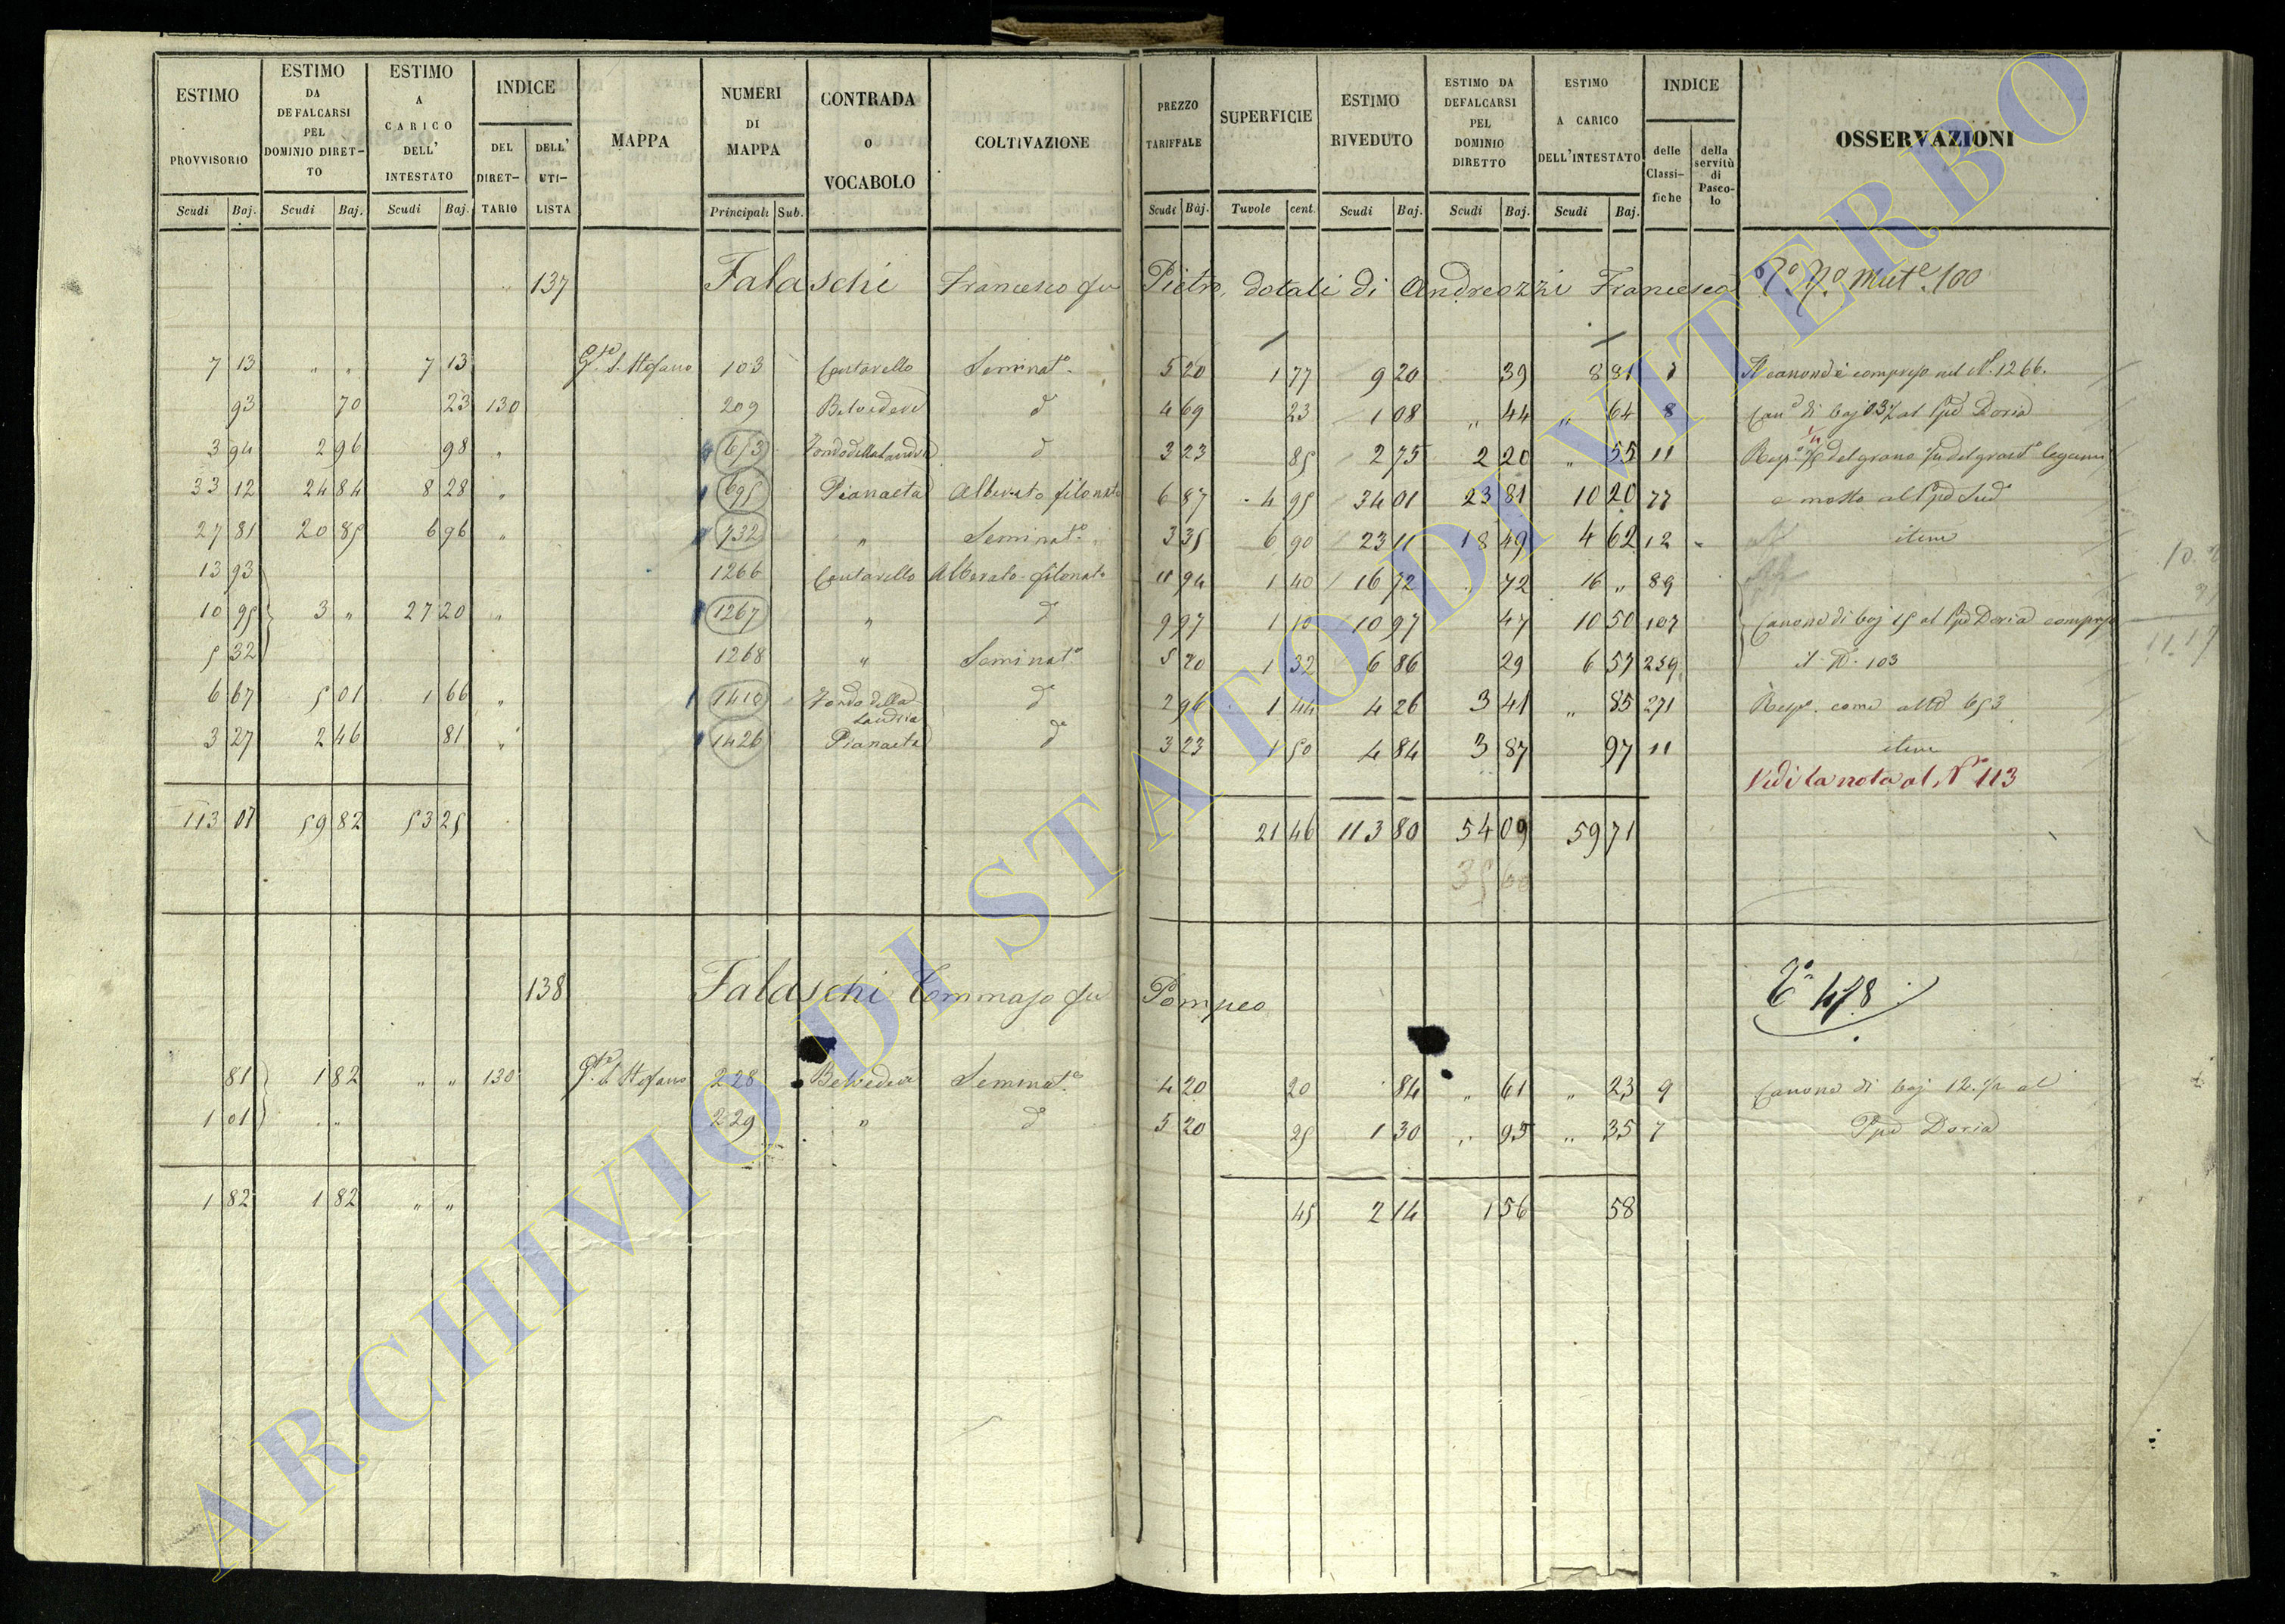 ESTIMO PROVVISORIO Scudi Baj. ESTIMO DA DEFALCARSI PEL DOMINIO DIRET-TO Scudi Baj. ESTIMO A CARICO DELL' INTESTATO Scudi Baj. INDICE DEL DIRET-TARIO DELL' UTI-LISTA MAPPA NUMERI DI MAPPA Principali Sub. CONTRADA O VOCABOLO COLTIVAZIONE PREZZO TARIFFALE Scudi Baj. SUPERFICIE Tavole cent. ESTIMO RIVEDUTO Scudi Baj. ESTIMO DA DEFALCARSI PEL DOMINIO DIRETTO Scudi Baj. ESTIMO A CARICO DELL'INTESTATO Scudi Baj. INDICE delle Classi-fiche della servitù di Pasco-lo OSSERVAZIONI
137 Falaschi Francesco fu Pietro, dotali di Andreozzi Francesca
7 13 " " 7 13 S. Stefano 103 Cantarello Seminat.o 5 20 1 77 9 20 39 8 81 7 Il canone è compreso nel N. 1266.
93 70 23 130 209 Belvedere d 4 69 23 1 08 " 44 " 64 8 di baj 03 al Doria
3 94 2 96 98 " 653 d 3 23 85 2 75 2 20 " 55 11 del grano legumi
33 12 24 84 8 28 " 695 Pianaeta Alberato filonato 6 87 4 95 34 01 23 81 10 20 77 e mosto al
27 81 20 85 6 96 " 732 " Seminat.o 3 35 6 90 23 11 18 49 4 62 12 item
13 93 1266 Cantarello Alberato filonato 11 94 1 40 16 72 72 16 " 89
10 95 3 " 27 20 " 1267 " d 9 97 1 10 10 97 47 10 50 107 Canone di baj 15 al Doria compreso
5 32 1268 " Seminat.o 5 20 1 32 6 86 29 6 57 259 103
6 67 5 01 1 66 " 1410 Fondo della Landria d 2 96 1 44 4 26 3 41 " 85 271 Resp. come al 653
3 27 2 46 81 " 1426 Pianaeta d 3 23 1 50 4 84 3 87 97 11 item
Vedi la nota al N.o 113
113 07 59 82 53 25 21 46 113 80 54 09 59 71
138 Falaschi Tommaso fu Pompeo
81 1 82 " " 130 S. Stefano 228 Belvedere Seminat.o 4 20 20 84 " 61 " 23 9 Canone di baj 12 al
1 01 " 229 " d 5 20 25 1 30 " 95 " 35 7 Doria
1 82 1 82 " " 45 2 14 1 56 58
ARCHIVIO DI STATO DI VITERBO